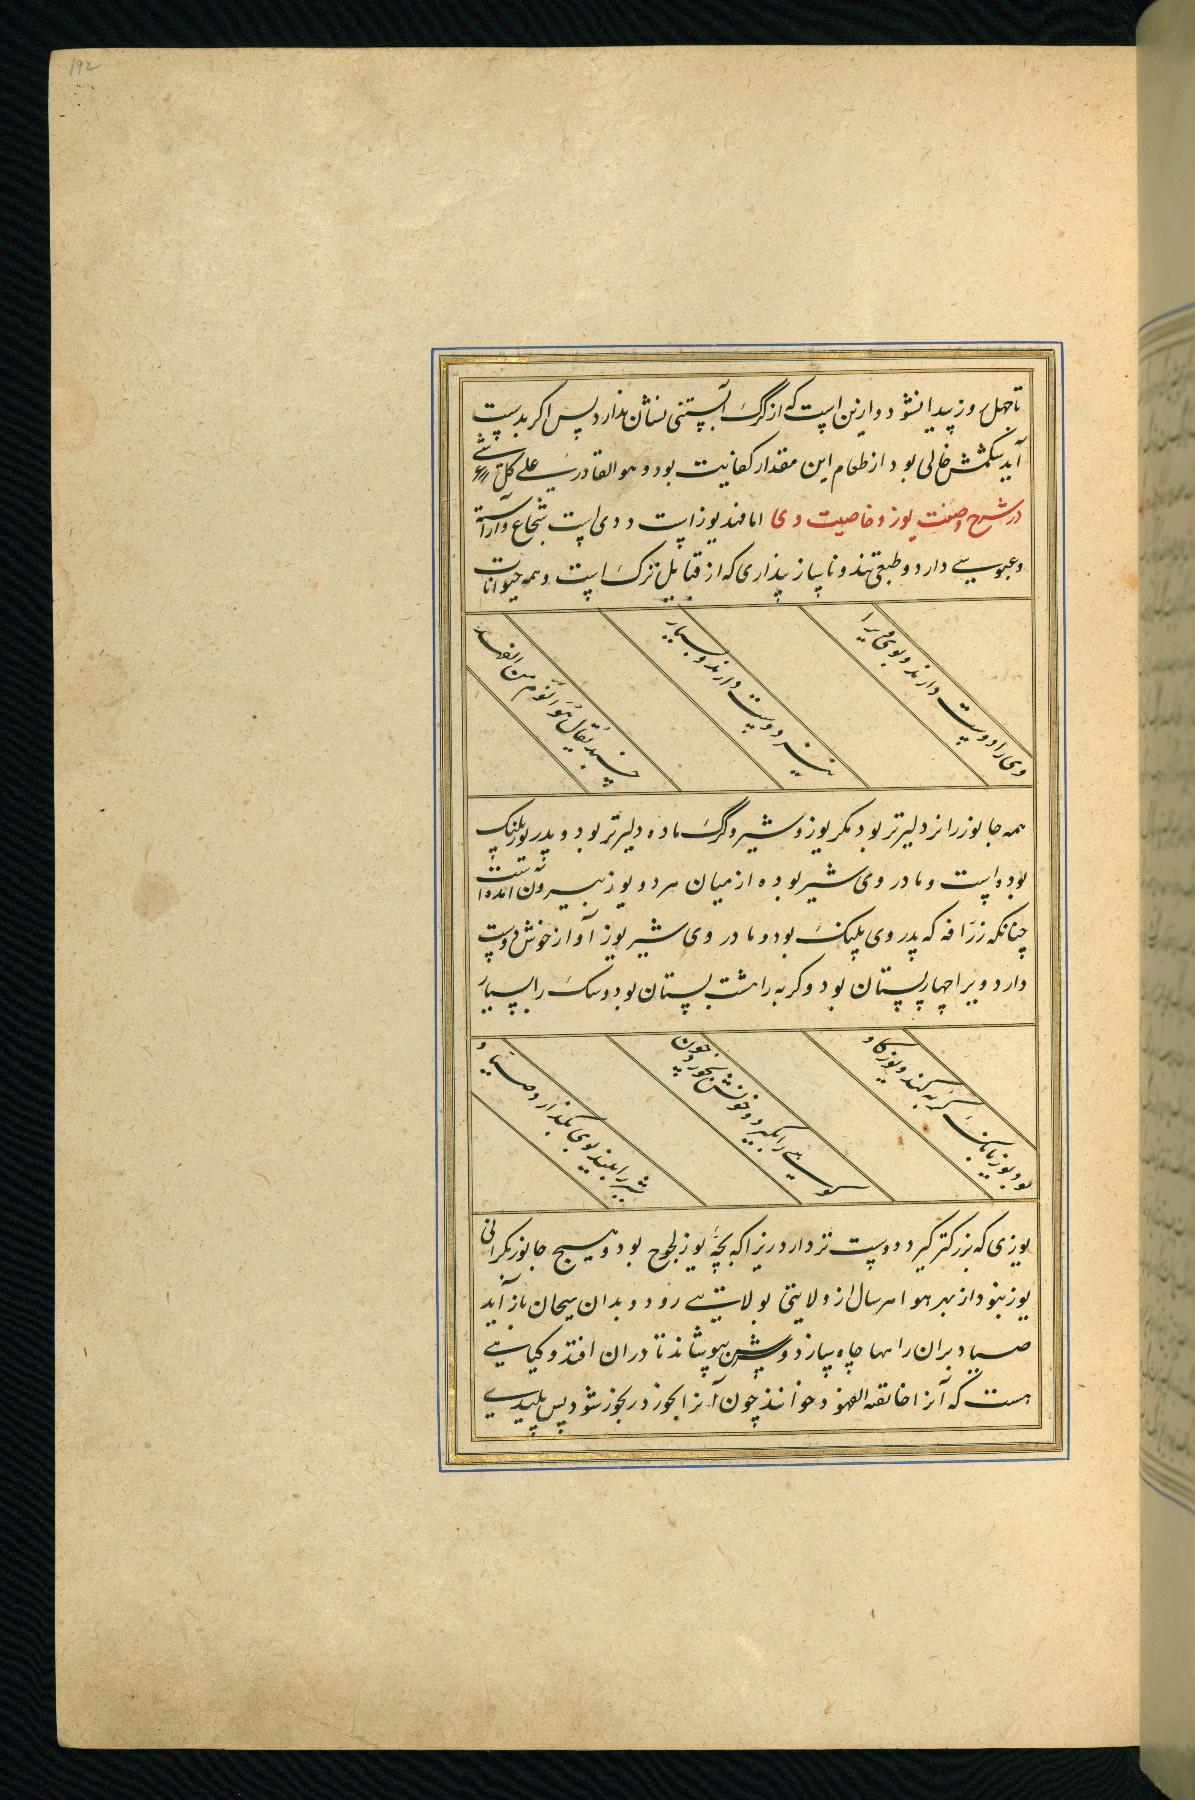 192
تا چهل روز پیدا نشود و ازین است که از گرگ آبستنی نشان ندارد پس اگر بدست
آید شکمش خالی بود از طعام این مقدار کفایت بود و هو القادر علی کل شیء
در شرح وصفت یوز و خاصیت وی اما فهد یوز است ددی است شجاع و آراسته
و عبوسی دارد و طبعی تند و ناساز پنداری که از قبایل ترک است و همه حیوانات
وی را دوست دارند و بوی ویرا
نیز دوست دارند و بسیار
خسبد یقال هو انوم من الفهد
همه جانور را نر دلیرتر بود مگر یوز و شیر و گرگ ماده دلیرتر بود و پدر یوز پلنگ
بوده است و مادر وی شیر بوده از میان هر دو یوز بیرون آمده است
چنانکه زرافه که پدر وی پلنگ بود و مادر وی شیر یوز آواز خوش دوست
دارد ویرا چهار پستان بود و گربه را هشت پستان بود و سگ را بسیار
بود یوز بانگ گربه کند و یوز گاو
کوهی را بگیرد و خونش بخورد چون
شیر را بیند بوی بگذارد و صیاد
یوزی که بزرگتر گیرد دوست تر دارد زیرا که بچه یوز لجوج بود و هیچ جانور بگرانی
یوز نبود از بهر هوا هر سال از ولایتی بولایتی رود و بدان سیحان باز آید
صیاد بران راهها چاه سازد و سرش بپوشاند تا دران افتد و گیاهی
هست که آنرا خانقة الفهود خوانند چون آنرا بخورد رنجور شود پس پلیدی